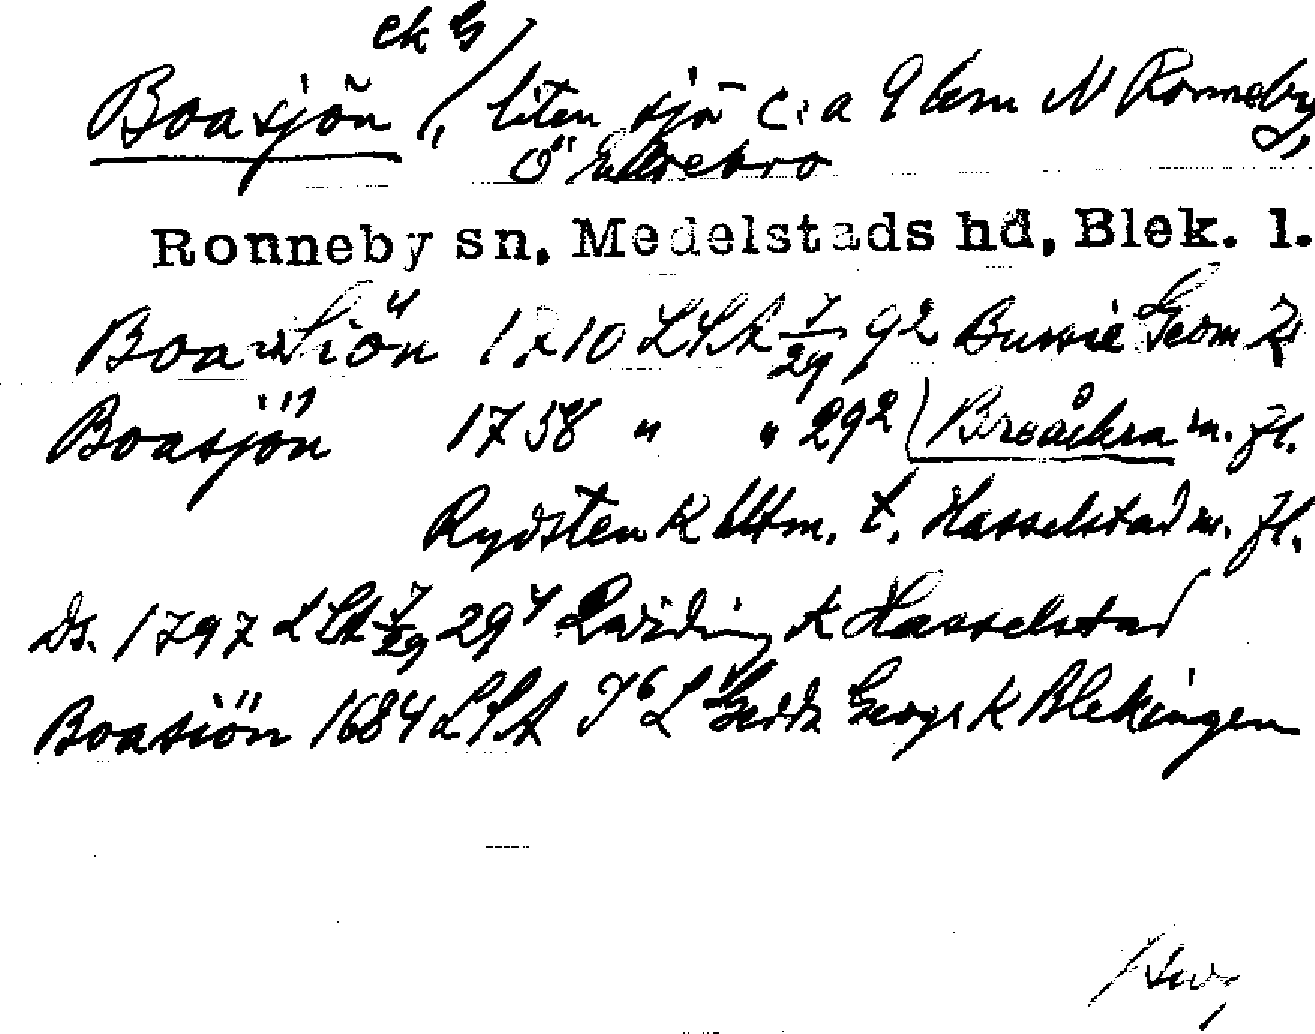 ek G
Boasjön, liten sjö c:a 9 km N Ronneby,
Ö Kallebro
Ronneby sn, Medelstads hd, Blek. l.
Boa Siön 1710 LSA 7/29 92 Bussie Geom
Boasjön 1758 " " 292 (Broåkra m. fl.
Rydsten K m. t. Hasselstad m. fl.
Ds. 1797 LSA 7/29 294 K Hasselstad
Boasiön 1684 LSA J6 1 Gedda Geogr K Blekingen